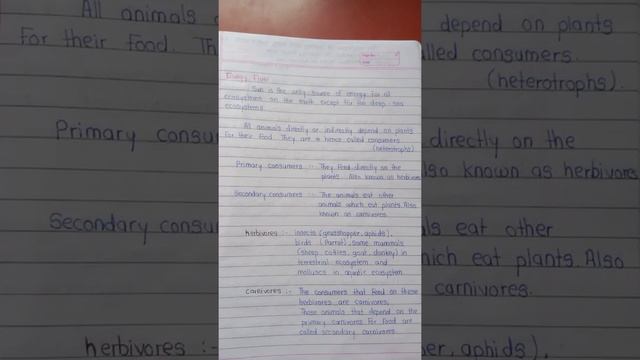 Energy Flow
Sun is the only source of energy for all
ecosystems on the earth except for the deep-sea
ecosystems
All animals directly or indirectly depend on plants
for their food. They are hence called consumers
(heterotrophs)
Primary consumers :- They feed directly on the
plants. Also known as herbivores
Secondary consumers :- The animals eat other
animals which eat plants. Also
known as carnivores.
herbivores :- insects (grasshopper, aphids),
birds (Parrot), some mammals
(sheep, cattles, goat, donkey) in
terrestrial ecosystem and
molluscs in aquatic ecosystem
carnivores :- The consumers that feed on these
herbivores are carnivores.
Those animals that depend on the
primary carnivores for food are
called secondary carnivores
All animals
for their food. Th
Primary consu
Secondary consu
herbivores :-
depend on plants
lled consumers.
(heterotrophs).
directly on the
lso known as herbivores
ls eat other
hich eat plants. Also
carnivores.
er, aphids)